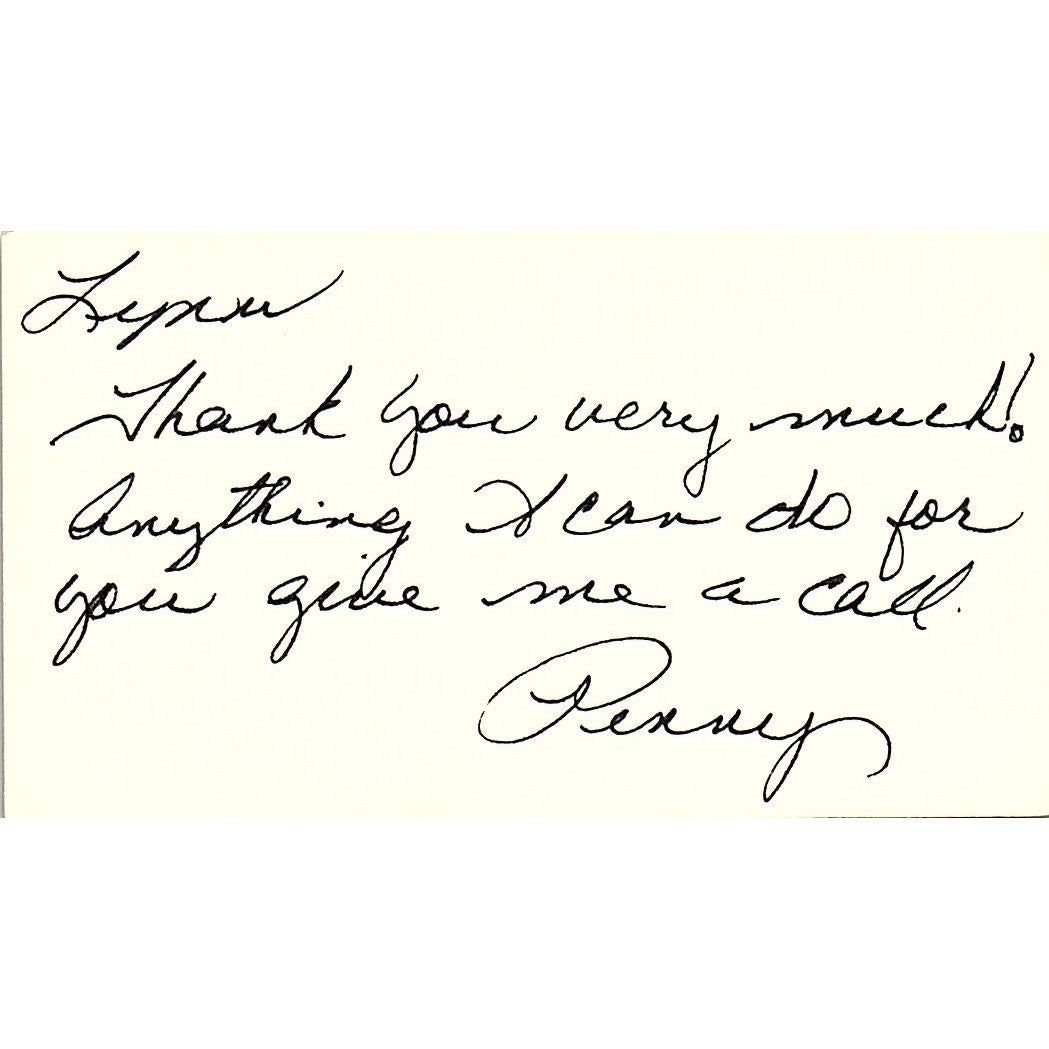 Lynn
Thank you very much!
Anything I can do for
you give me a call.
Penny